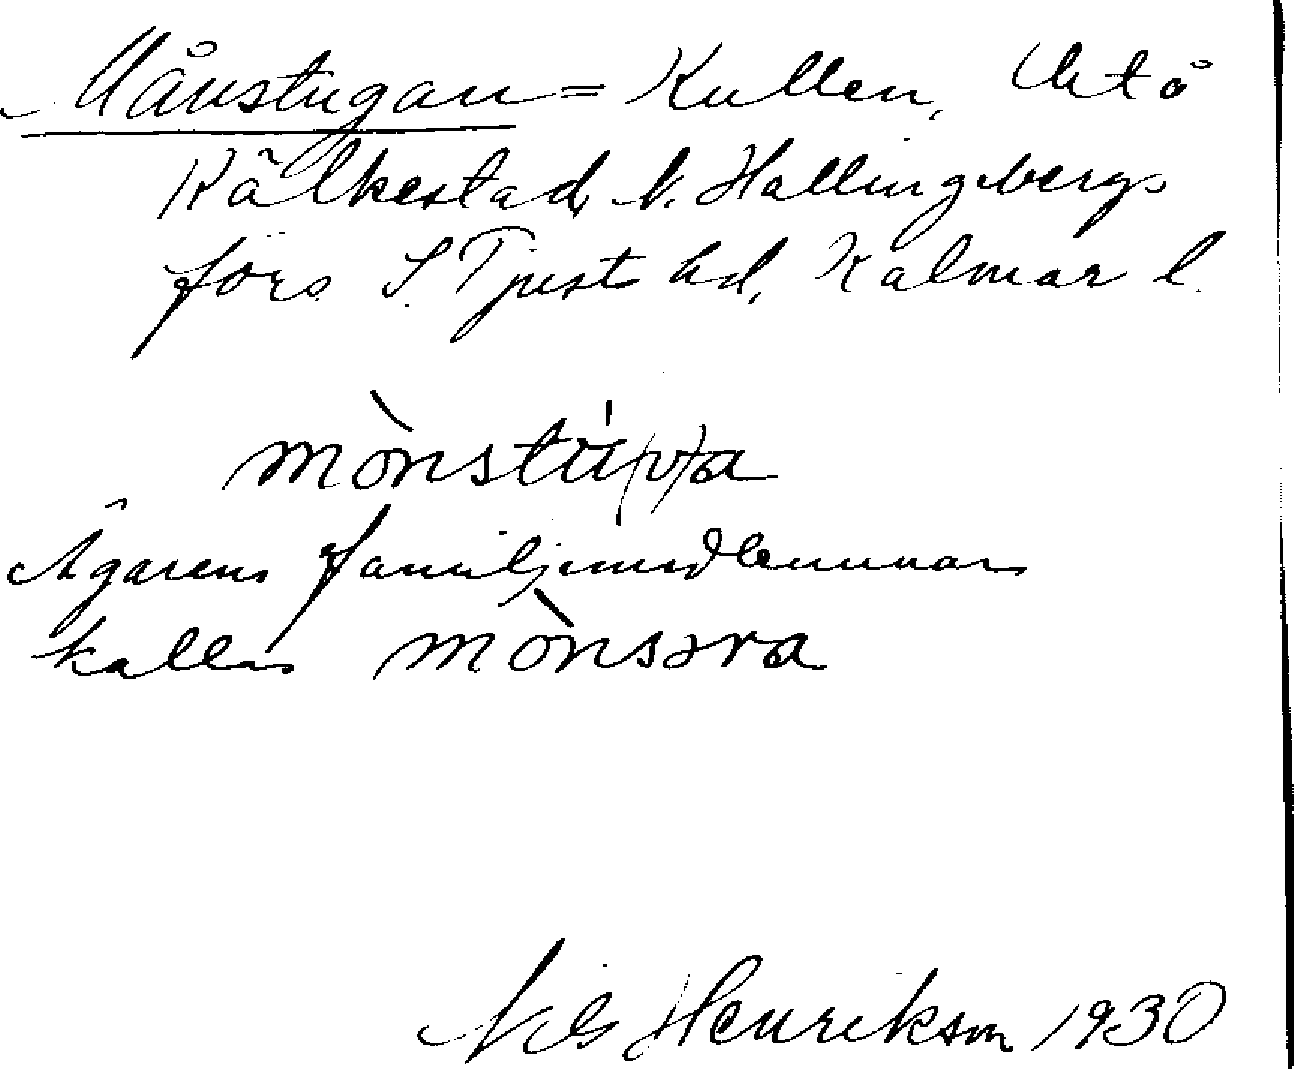 Månstugan = Kullen,
Kälkestad, N. Hallingebergs
förs S. Tjust hd, Kalmar l.
mònstu̇(v)a
Ägarens familjemedlemmar
kallas mònsəra
Nils Henrikson 1930